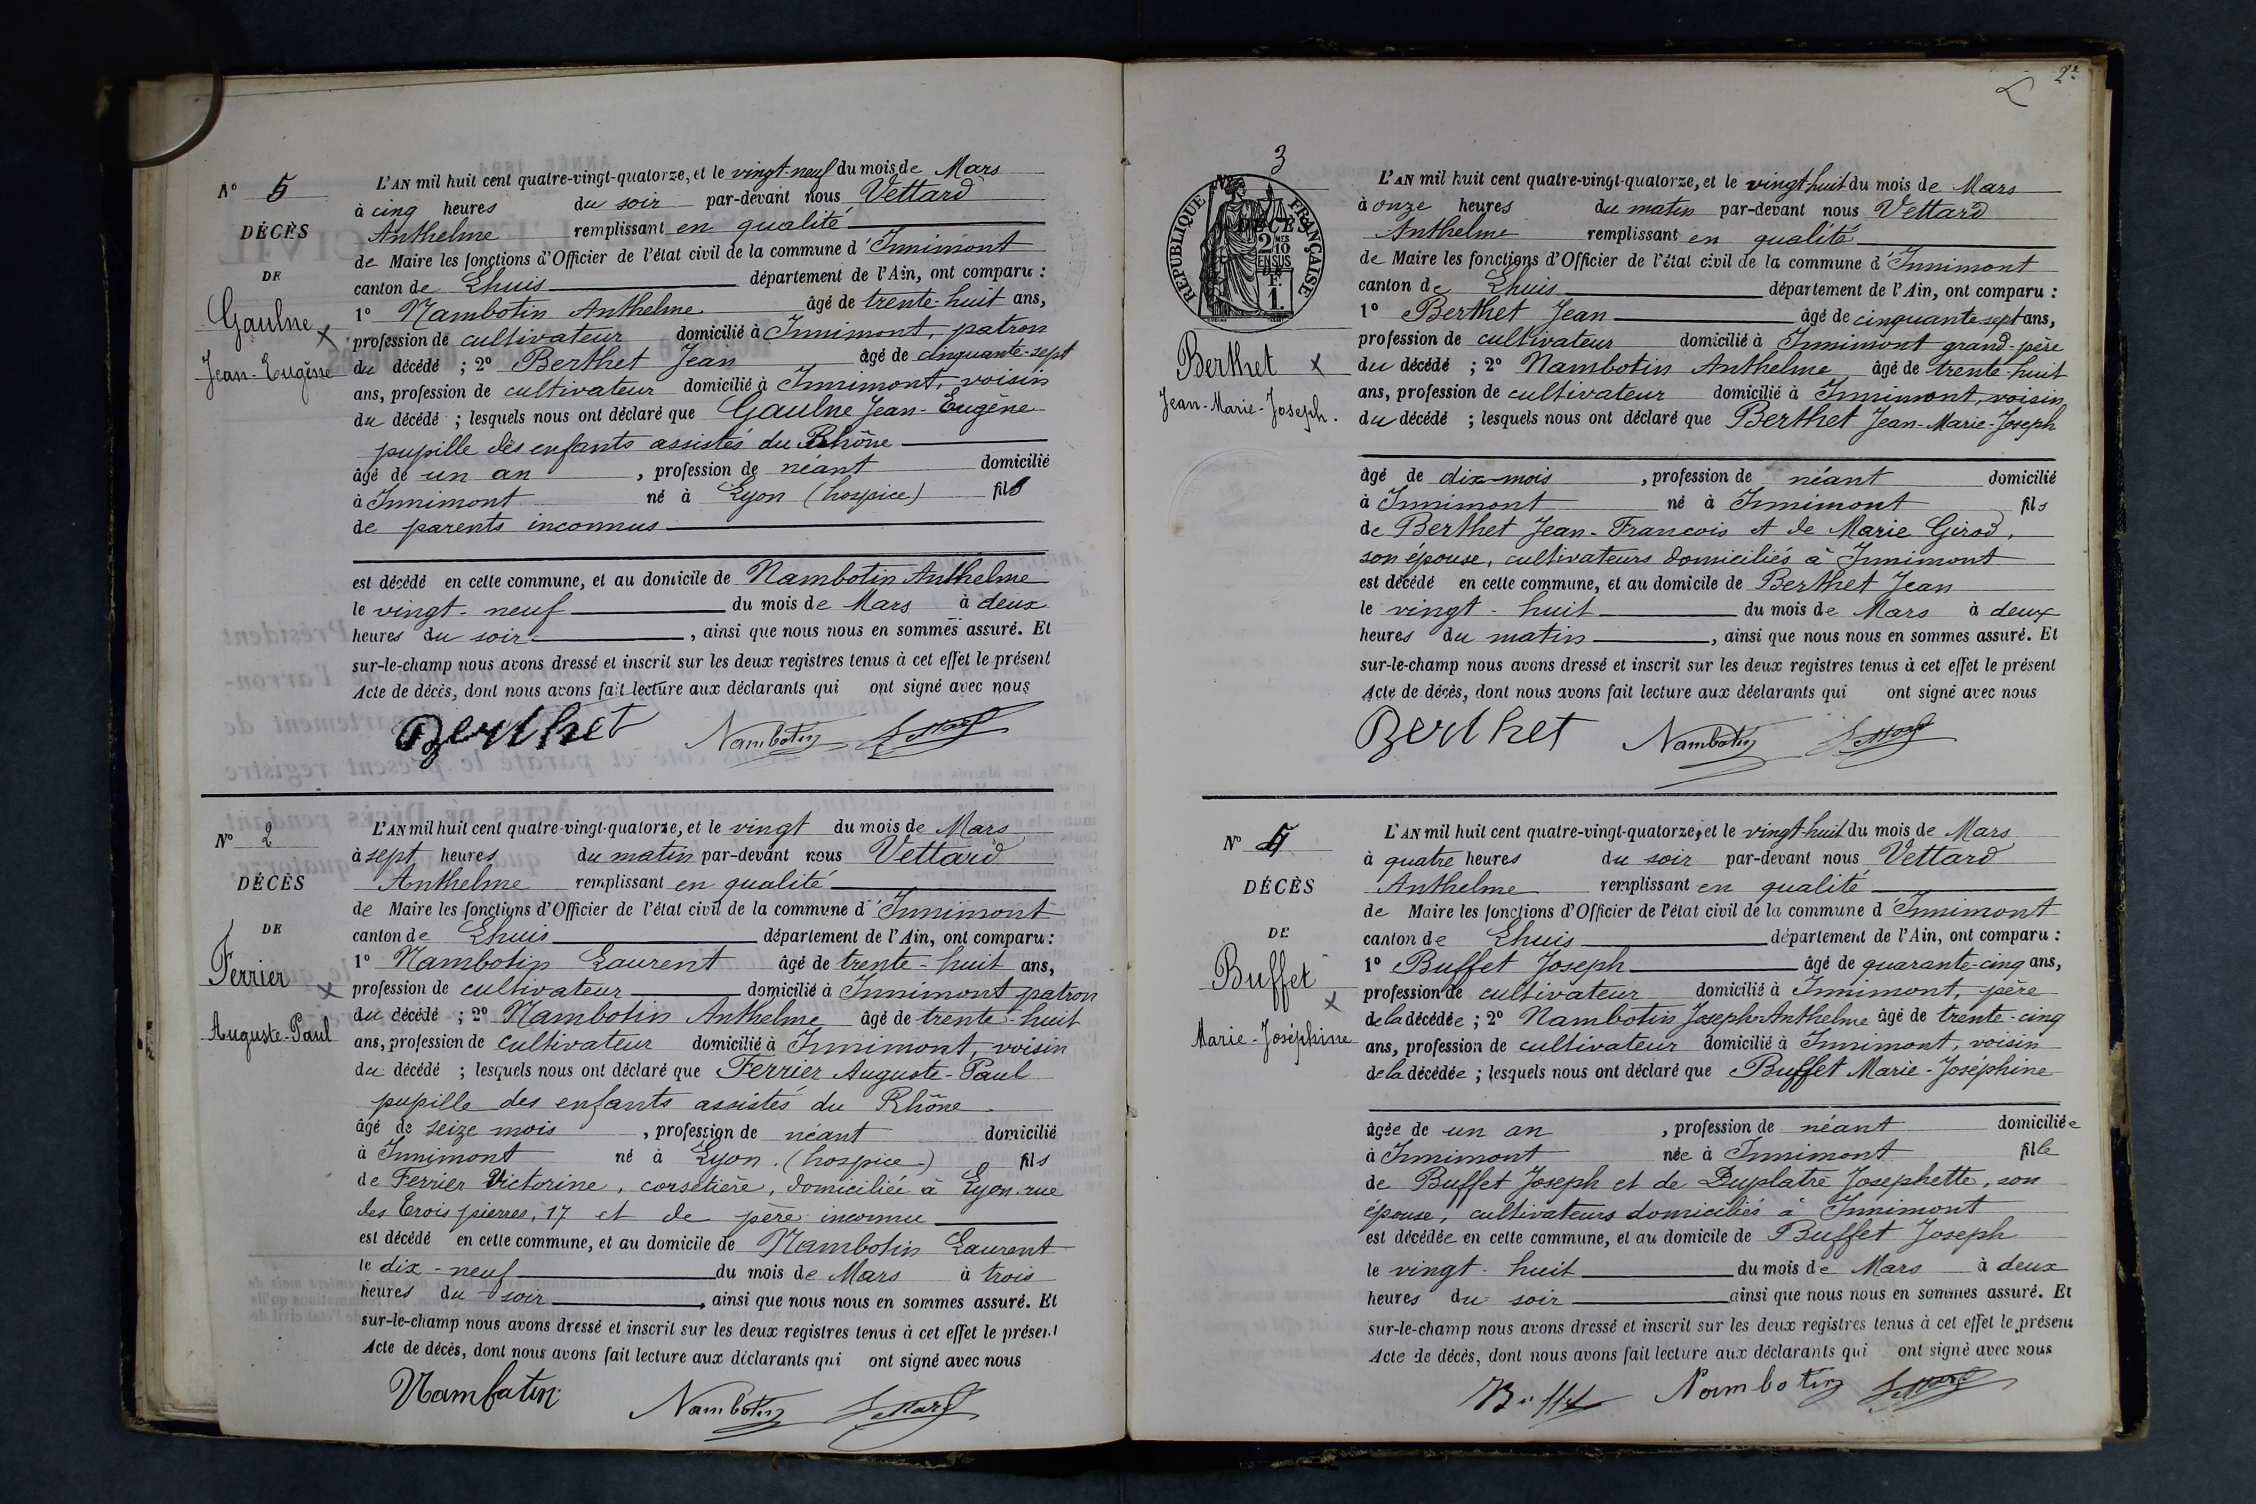 N° 5
DÉCÈS
DE
Gaulne
Jean-Eugène
L'AN mil huit cent quatre-vingt-quatorze, et le vingt-neuf du mois de Mars
à cinq heures du soir par-devant nous Vettard
Anthelme remplissant en qualité
de Maire les fonctions d'Officier de l'état civil de la commune d'Innimont
canton de Lhuis département de l'Ain, ont comparu :
1° Nambotin Anthelme âgé de trente-huit ans,
profession de cultivateur domicilié à Innimont, patron
du décédé ; 2° Berthet Jean âgé de cinquante-sept
ans, profession de cultivateur domicilié à Innimont, voisin
du décédé ; lesquels nous ont déclaré que Gaulne Jean-Eugène
pupille des enfants assistés du Rhône
âgé de un an , profession de néant domicilié
à Innimont né à Lyon (hospice) fils
de parents inconnus
est décédé en cette commune, et au domicile de Nambotin Anthelme
le vingt-neuf du mois de Mars à deux
heures du soir , ainsi que nous nous en sommes assuré. Et
sur-le-champ nous avons dressé et inscrit sur les deux registres tenus à cet effet le présent
Acte de décès, dont nous avons fait lecture aux déclarants qui ont signé avec nous
Berthet Nambotin Vettard
N° 2
DÉCÈS
DE
Ferrier
Auguste-Paul
L'AN mil huit cent quatre-vingt-quatorze, et le vingt du mois de Mars
à sept heures du matin par-devant nous Vettard
Anthelme remplissant en qualité
de Maire les fonctions d'Officier de l'état civil de la commune d'Innimont
canton de Lhuis département de l'Ain, ont comparu :
1° Nambotin Laurent âgé de trente-huit ans,
profession de cultivateur domicilié à Innimont patron
du décédé ; 2° Nambotin Anthelme âgé de trente-huit
ans, profession de cultivateur domicilié à Innimont, voisin
du décédé ; lesquels nous ont déclaré que Ferrier Auguste-Paul
pupille des enfants assistés du Rhône
âgé de seize mois , profession de néant domicilié
à Innimont né à Lyon (hospice) fils
de Ferrier Victorine, corsetière, domiciliée à Lyon rue
des Trois pierres, 17 et de père inconnu
est décédé en cette commune, et au domicile de Nambotin Laurent
le dix-neuf du mois de Mars à trois
heures du soir , ainsi que nous nous en sommes assuré. Et
sur-le-champ nous avons dressé et inscrit sur les deux registres tenus à cet effet le présent
Acte de décès, dont nous avons fait lecture aux déclarants qui ont signé avec nous
Nambotin Nambotin Vettard
2
3
RÉPUBLIQUE FRANÇAISE
N°
DÉCÈS
2 MES 10 EN SUS
DE
F. 1.
Berthet
Jean-Marie-Joseph.
L'AN mil huit cent quatre-vingt-quatorze, et le vingt-huit du mois de Mars
à onze heures du matin par-devant nous Vettard
Anthelme remplissant en qualité
de Maire les fonctions d'Officier de l'état civil de la commune d'Innimont
canton de Lhuis département de l'Ain, ont comparu :
1° Berthet Jean âgé de cinquante sept ans,
profession de cultivateur domicilié à Innimont grand-père
du décédé ; 2° Nambotin Anthelme âgé de trente-huit
ans, profession de cultivateur domicilié à Innimont, voisin
du décédé ; lesquels nous ont déclaré que Berthet Jean-Marie-Joseph
âgé de dix mois , profession de néant domicilié
à Innimont né à Innimont fils
de Berthet Jean-Francois et de Marie Girod,
son épouse, cultivateurs domiciliés à Innimont
est décédé en cette commune, et au domicile de Berthet Jean
le vingt-huit du mois de Mars à deux
heures du matin , ainsi que nous nous en sommes assuré. Et
sur-le-champ nous avons dressé et inscrit sur les deux registres tenus à cet effet le présent
Acte de décès, dont nous avons fait lecture aux déclarants qui ont signé avec nous
Berthet Nambotin Vettard
N° 4
DÉCÈS
DE
Buffet
Marie-Joséphine
L'AN mil huit cent quatre-vingt-quatorze, et le vingt-huit du mois de Mars
à quatre heures du soir par-devant nous Vettard
Anthelme remplissant en qualité
de Maire les fonctions d'Officier de l'état civil de la commune d'Innimont
canton de Lhuis département de l'Ain, ont comparu :
1° Buffet Joseph âgé de quarante-cinq ans,
profession de cultivateur domicilié à Innimont, père
de la décédée ; 2° Nambotin Joseph-Anthelme âgé de trente-cinq
ans, profession de cultivateur domicilié à Innimont, voisin
de la décédée ; lesquels nous ont déclaré que Buffet Marie-Joséphine
âgée de un an , profession de néant domiciliée
à Innimont née à Innimont fille
de Buffet Joseph et de Duplatre Josephette, son
épouse, cultivateurs domiciliés à Innimont
est décédée en cette commune, et au domicile de Buffet Joseph
le vingt-huit du mois de Mars à deux
heures du soir ainsi que nous nous en sommes assuré. Et
sur-le-champ nous avons dressé et inscrit sur les deux registres tenus à cet effet le présent
Acte de décès, dont nous avons fait lecture aux déclarants qui ont signé avec nous
Buffet Nambotin Vettard